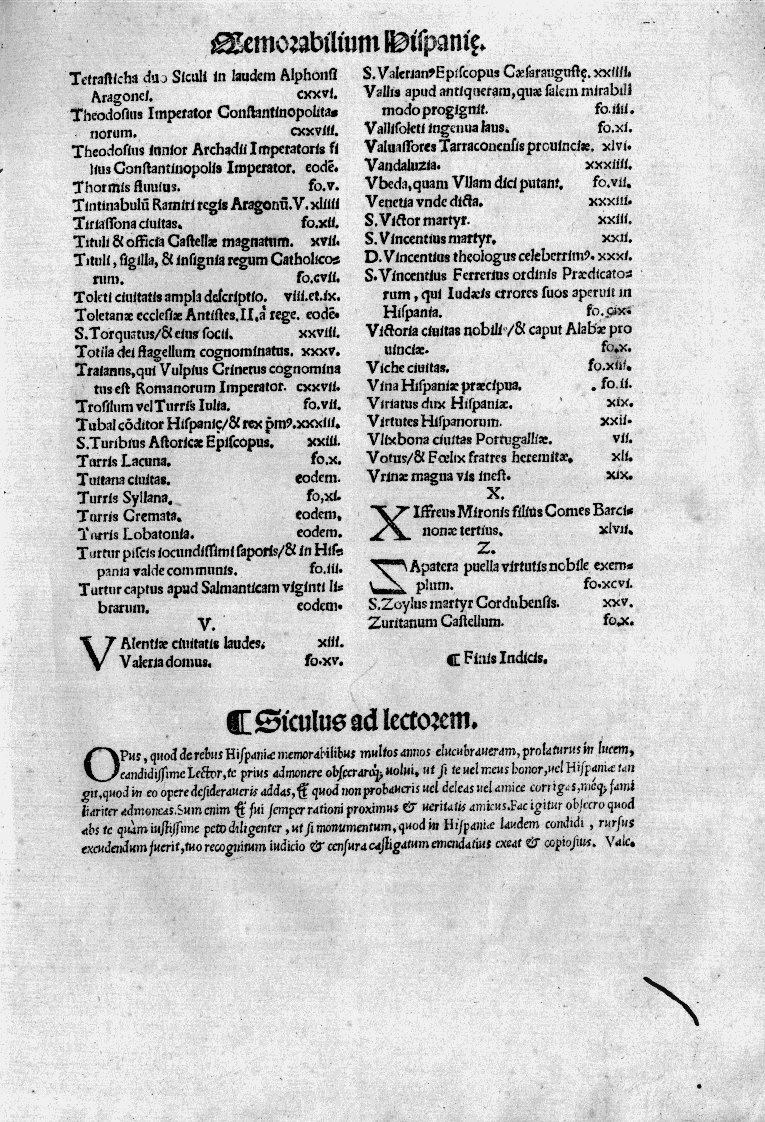 Memorabilium Hispanię.
Tetrasticha duo Siculi in laudem Alphonsi
Aragonei. cxxvi.
Theodosius Imperator Constantinopolita-
norum. cxxviii.
Theodosius iunior Archadii Imperatoris fi
lius Constantinopolis Imperator. eodē.
Thormis fluuius. fo.v.
Tintinabulū Ramiri regis Aragonū.V. xliiii
Tiriassona ciuitas. fo.xii.
Tituli & officia Castellæ magnatum. xvii.
Tituli, sigilla, & insignia regum Catholico-
rum. fo.cvii.
Toleti ciuitatis ampla descriptio. viii.et.ix.
Toletanæ ecclesiæ Antistes.II.à rege. eodē.
S.Torquatus/& eius socii. xxviii.
Totila dei flagellum cognominatus. xxxv.
Traianus,qui Vulpius Crinetus cognomina
tus est Romanorum Imperator. cxxvii.
Trosilum vel Turris Iulia. fo.vii.
Tubal cōditor Hispanię/& rex p̄mꝰ.xxxiii.
S.Turibius Astoricæ Episcopus. xxiii.
Turris Lacuna. fo.x.
Tuitana ciuitas. eodem.
Turris Syllana. fo,xi.
Turris Cremata. eodem,
Turris Lobatonia. eodem.
Turtur piscis iocundissimi saporis/& in His-
pania valde communis. fo.iii.
Turtur captus apud Salmanticam viginti li-
brarum. eodem.
V.
VAlentiæ ciuitatis laudes. xiii.
Valeria domus. fo.xv.
S.Valerianꝰ Episcopus Cæsaraugustę. xxiiii.
Vallis apud antiqueram,quæ salem mirabili
modo progignit. fo.iiii.
Vallisoleti ingenua laus. fo.xi.
Valuassores Tarraconensis prouinciæ. xlvi.
Vandaluzia. xxxiiii.
Vbeda,quam Vllam dici putant. fo.vii.
Venetia vnde dicta. xxxiii.
S.Victor martyr. xxiii.
S.Vincentius martyr. xxii.
D.Vincentius theologus celeberrimꝰ. xxxi.
S.Vincentius Ferrerius ordinis Prædicato-
rum, qui Iudæis errores suos aperuit in
Hispania. fo.cix.
Victoria ciuitas nobilis/& caput Alabæ pro
uinciæ. fo.x.
Viche ciuitas. fo.xiii.
Vina Hispaniæ præcipua. fo.ii.
Viriatus dux Hispaniæ. xix.
Virtutes Hispanorum. xxii.
Vlixbona ciuitas Portugalliæ. vii.
Votus/& Fœlix fratres heremitæ. xli.
Vrinæ magna vis inest. xix.
X.
XIffreus Mironis filius Comes Barci-
nonæ tertius. xlvii.
Z.
ZApatera puella virtutis nobile exem-
plum. fo.xcvi.
S.Zoylus martyr Cordubensis. xxv.
Zuritanum Castellum. fo.x.
¶ Finis Indicis.
¶ Siculus ad lectorem.
OPus, quod de rebus Hispaniæ memorabilibus multos annos elucubraueram, prolaturus in lucem,
candidissime Lector, te prius admonere obsecrarq́; uolui, ut si te uel meus honor,uel Hispaniæ tan
git,quod in eo opere desideraueris addas, & quod non probaueris uel deleas uel amice corrigas,meq́; fami
liariter admoneas.Sum enim & fui semper rationi proximus & ueritatis amicus.Fac igitur obsecro quod
abs te quàm iustissime peto diligenter, ut si monumentum, quod in Hispaniæ laudem condidi, rursus
excudendum fuerit,tuo recognitum iudicio & censura castigatum emendatius exeat & copiosius. Vale.